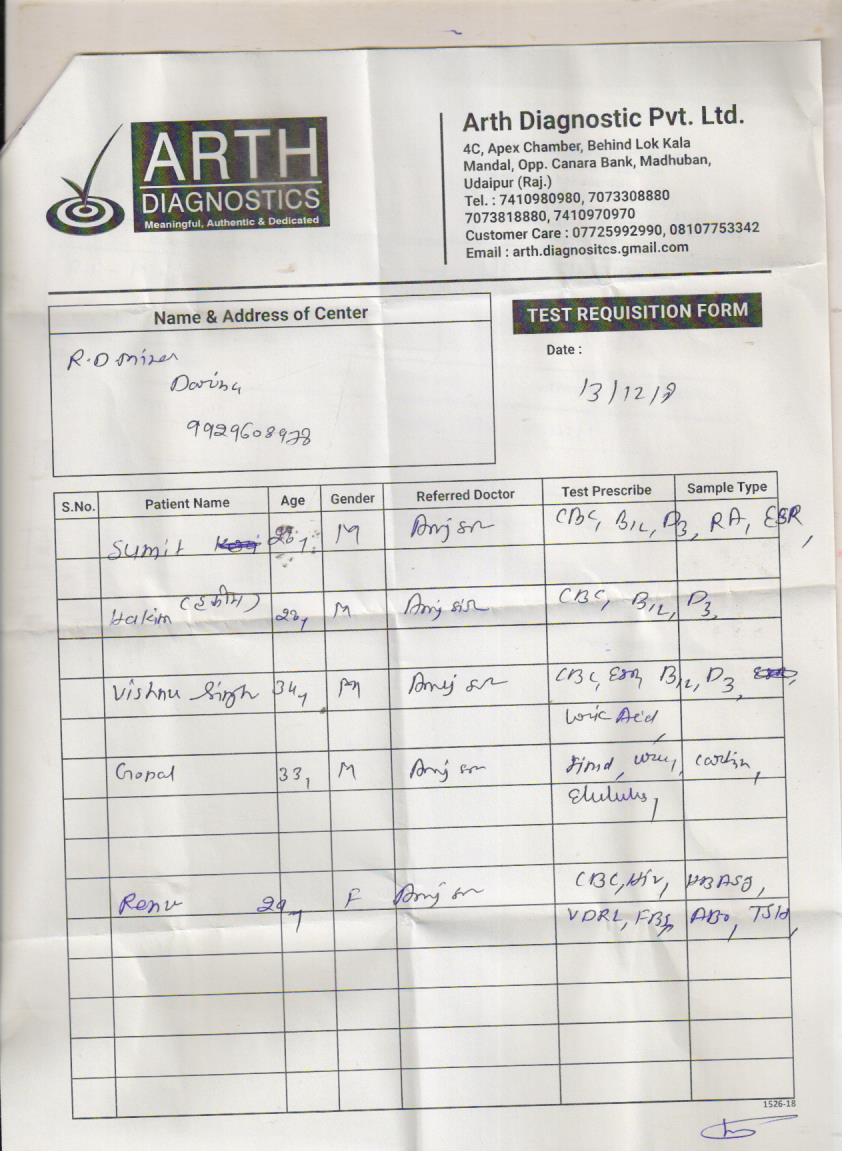 ARTH
DIAGNOSTICS
Meaningful, Authentic & Dedicated
Arth Diagnostic Pvt. Ltd.
4C, Apex Chamber, Behind Lok Kala
Mandal, Opp. Canara Bank, Madhuban,
Udaipur (Raj.)
Tel. : 7410980980, 7073308880
7073818880, 7410970970
Customer Care : 07725992990, 08107753342
Email : arth.diagnositcs.gmail.com
Name & Address of Center
TEST REQUISITION FORM
R.D
Date :
13/12/
S.No. Patient Name Age Gender Referred Doctor Test Prescribe Sample Type
Sumit M CBC, B12, D3, RA, ESR,
Hakim (हकीम) M CBC, B12, D3,
Vishnu Singh 34, M CBC, ESR, B12, D3,
Uric Acid,
Gopal 33, M
Renu 29, F CBC, Hiv, HBASG,
VDRL, FBS, ABO, TSH,
1526-18